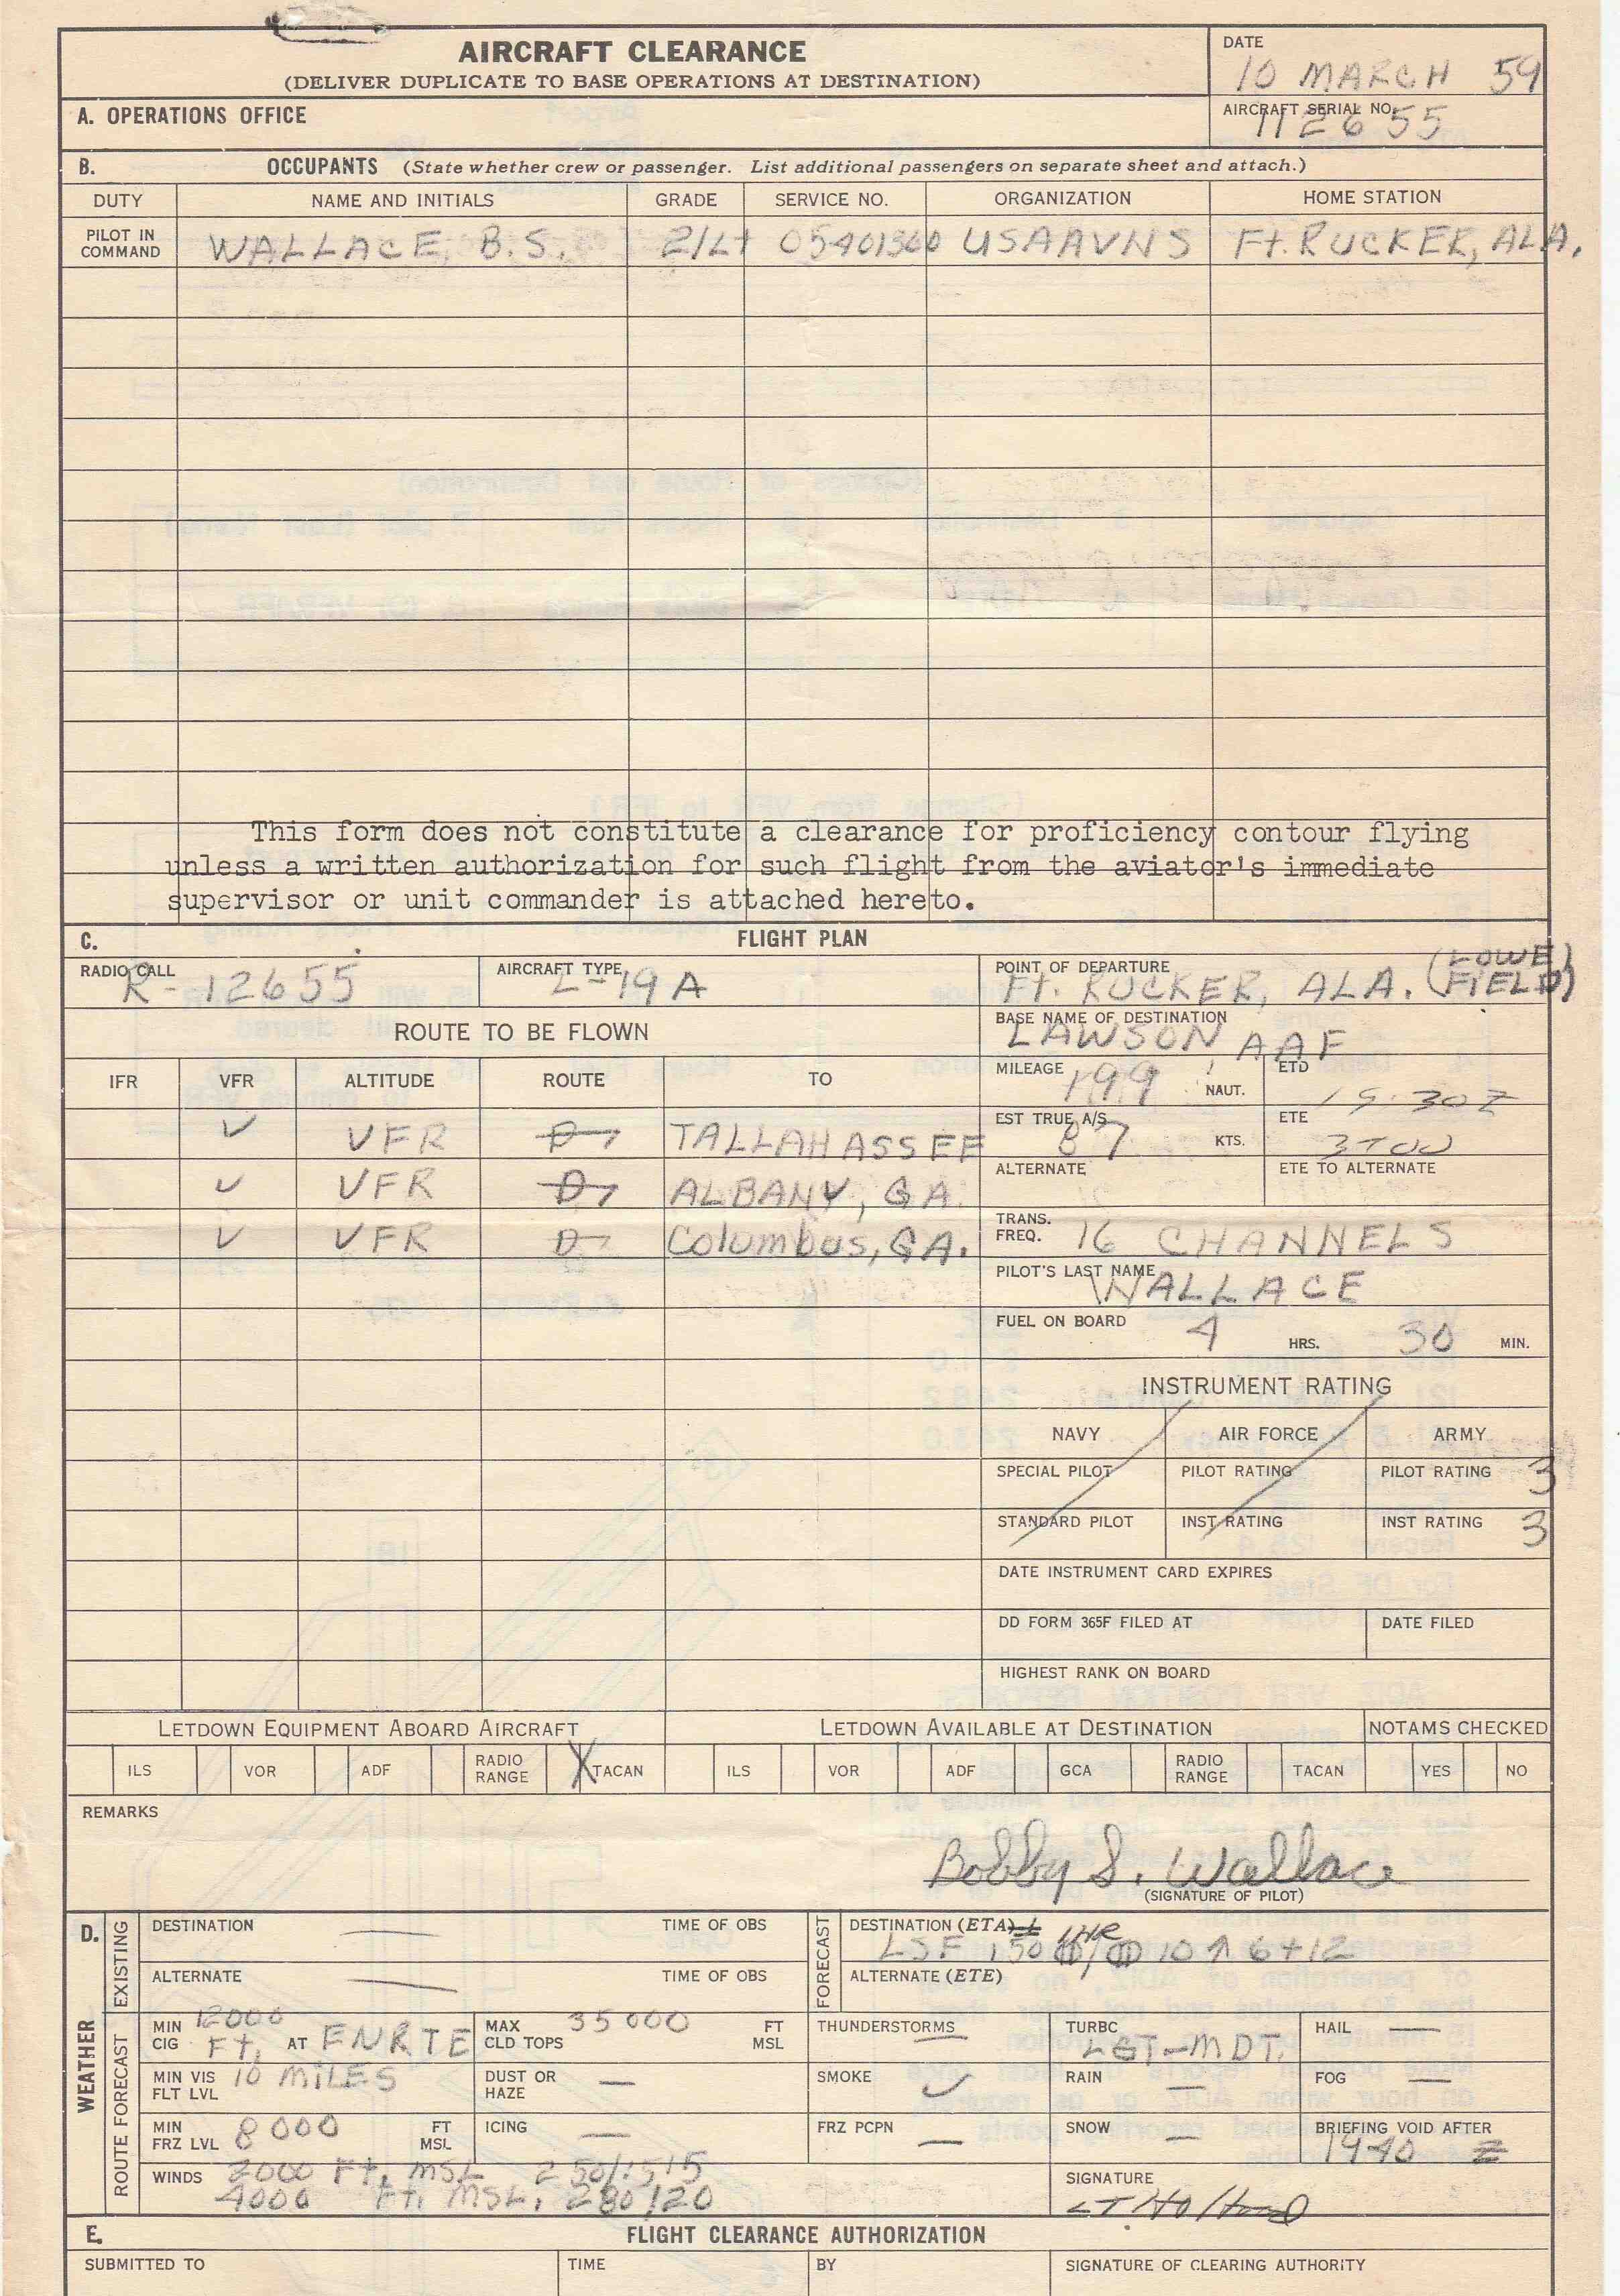 AIRCRAFT CLEARANCE
(DELIVER DUPLICATE TO BASE OPERATIONS AT DESTINATION)
DATE
10 MARCH 59
A. OPERATIONS OFFICE
AIRCRAFT SERIAL NO.
112655
B. OCCUPANTS (State whether crew or passenger. List additional passengers on separate sheet and attach.)
DUTY NAME AND INITIALS GRADE SERVICE NO. ORGANIZATION HOME STATION
PILOT IN COMMAND WALLACE, B.S. 2/Lt 05401360 USAAVNS Ft. RUCKER, ALA.
This form does not constitute a clearance for proficiency contour flying
unless a written authorization for such flight from the aviator's immediate
supervisor or unit commander is attached hereto.
C. FLIGHT PLAN
RADIO CALL R-12655 AIRCRAFT TYPE L-19A
POINT OF DEPARTURE Ft. RUCKER, ALA. (LOWE FIELD)
ROUTE TO BE FLOWN
BASE NAME OF DESTINATION
LAWSON AAF
IFR VFR ALTITUDE ROUTE TO
MILEAGE 199 NAUT. ETD 1930Z
✓ VFR D TALLAHASSEE
EST TRUE A/S 87 KTS. ETE
✓ VFR D ALBANY, GA.
ALTERNATE ETE TO ALTERNATE
✓ VFR D Columbus, GA.
TRANS. FREQ. 16 CHANNELS
PILOT'S LAST NAME
WALLACE
FUEL ON BOARD 4 HRS. 30 MIN.
INSTRUMENT RATING
NAVY AIR FORCE ARMY
SPECIAL PILOT PILOT RATING PILOT RATING 3
STANDARD PILOT INST RATING INST RATING 3
DATE INSTRUMENT CARD EXPIRES
DD FORM 365F FILED AT DATE FILED
HIGHEST RANK ON BOARD
LETDOWN EQUIPMENT ABOARD AIRCRAFT LETDOWN AVAILABLE AT DESTINATION NOTAMS CHECKED
ILS VOR ADF RADIO RANGE X TACAN ILS VOR ADF GCA RADIO RANGE TACAN YES NO
REMARKS
Bobby S. Wallace
(SIGNATURE OF PILOT)
D. WEATHER
EXISTING
DESTINATION — TIME OF OBS
ALTERNATE — TIME OF OBS
FORECAST
DESTINATION (ETA)
LSF 150 10 ↑ 6+12
ALTERNATE (ETE)
ROUTE FORECAST
MIN CIG 12000 Ft. AT ENRTE MAX CLD TOPS 35000 FT MSL THUNDERSTORMS — TURBC LGT-MDT. HAIL —
MIN VIS FLT LVL 10 MILES DUST OR HAZE — SMOKE ✓ RAIN — FOG —
MIN FRZ LVL 8000 FT MSL ICING — FRZ PCPN — SNOW — BRIEFING VOID AFTER 1940 Z
WINDS 2000 Ft. MSL
4000 Ft. MSL, 280/20
SIGNATURE
LT Holland
E. FLIGHT CLEARANCE AUTHORIZATION
SUBMITTED TO TIME BY SIGNATURE OF CLEARING AUTHORITY